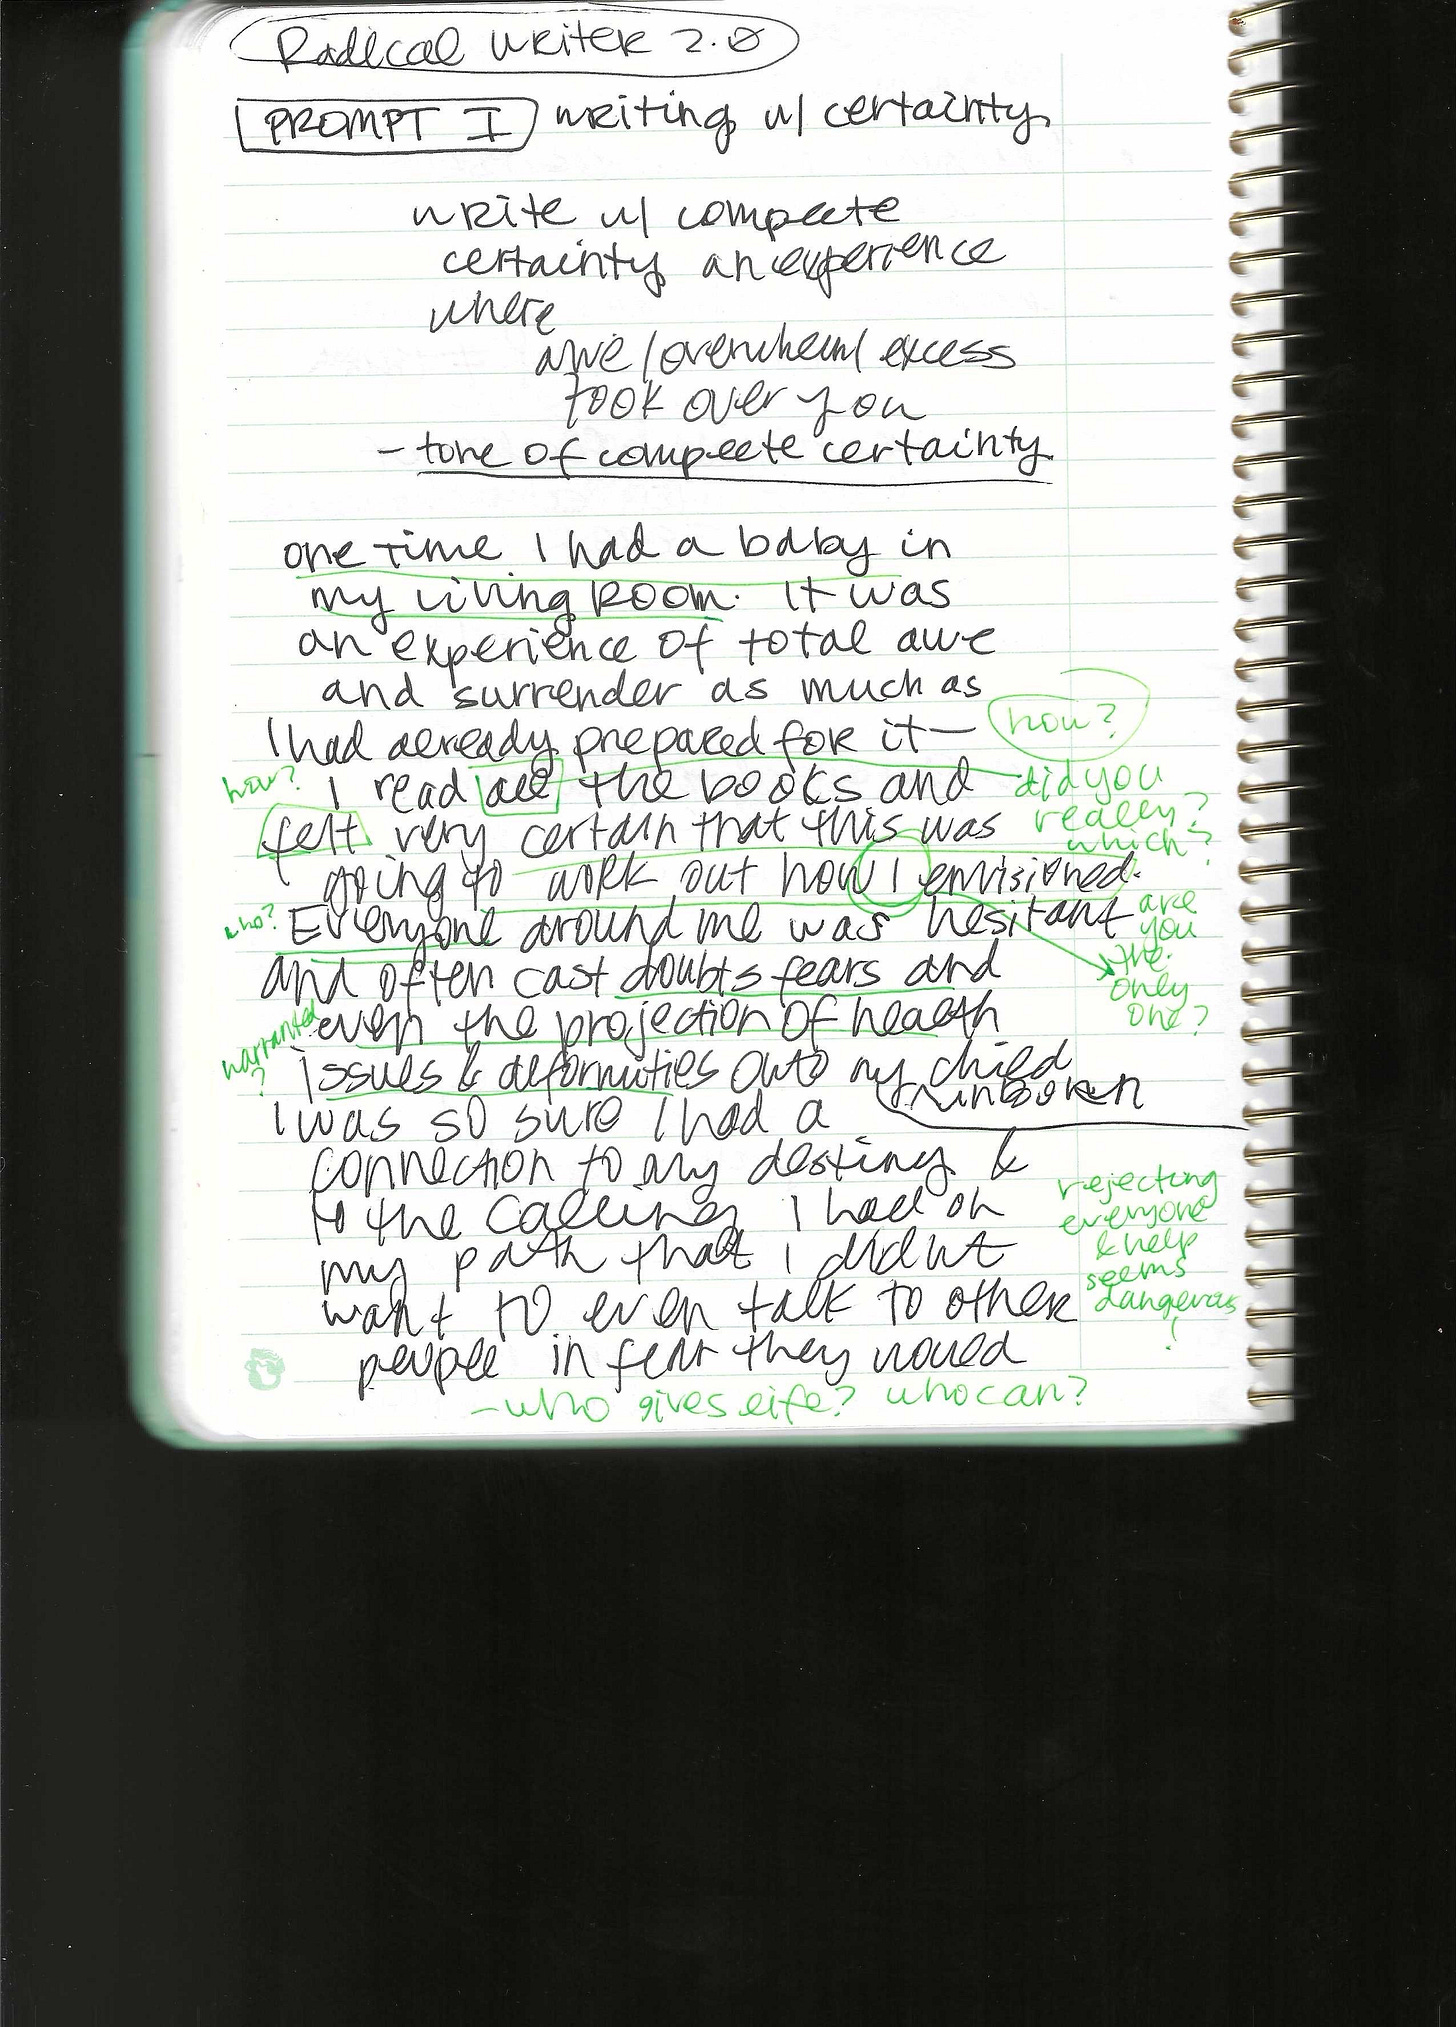 Radical Writer 2.0
PROMPT I writing w/ certainty
write w/ complete
certainty an experience
where
awe/overwhelm/excess
took over you
- tone of complete certainty
one time I had a baby in
my living room. It was
an experience of total awe
and surrender as much as
I had already prepared for it—
how?
how?
I read all the books and
did you
really?
which?
felt very certain that this was
going to work out how I envisioned.
are
you
the
only
one?
who?
Everyone around me was hesitant
and often cast doubts fears and
even the projection of health
warranted
?
issues & deformities onto my child
unborn
I was so sure I had a
connection to my destiny &
to the calling I had on
my path that I didn't
want to even talk to other
people in fear they would
rejecting
everyone
& help
seems
dangerous
!
- who gives life? who can?